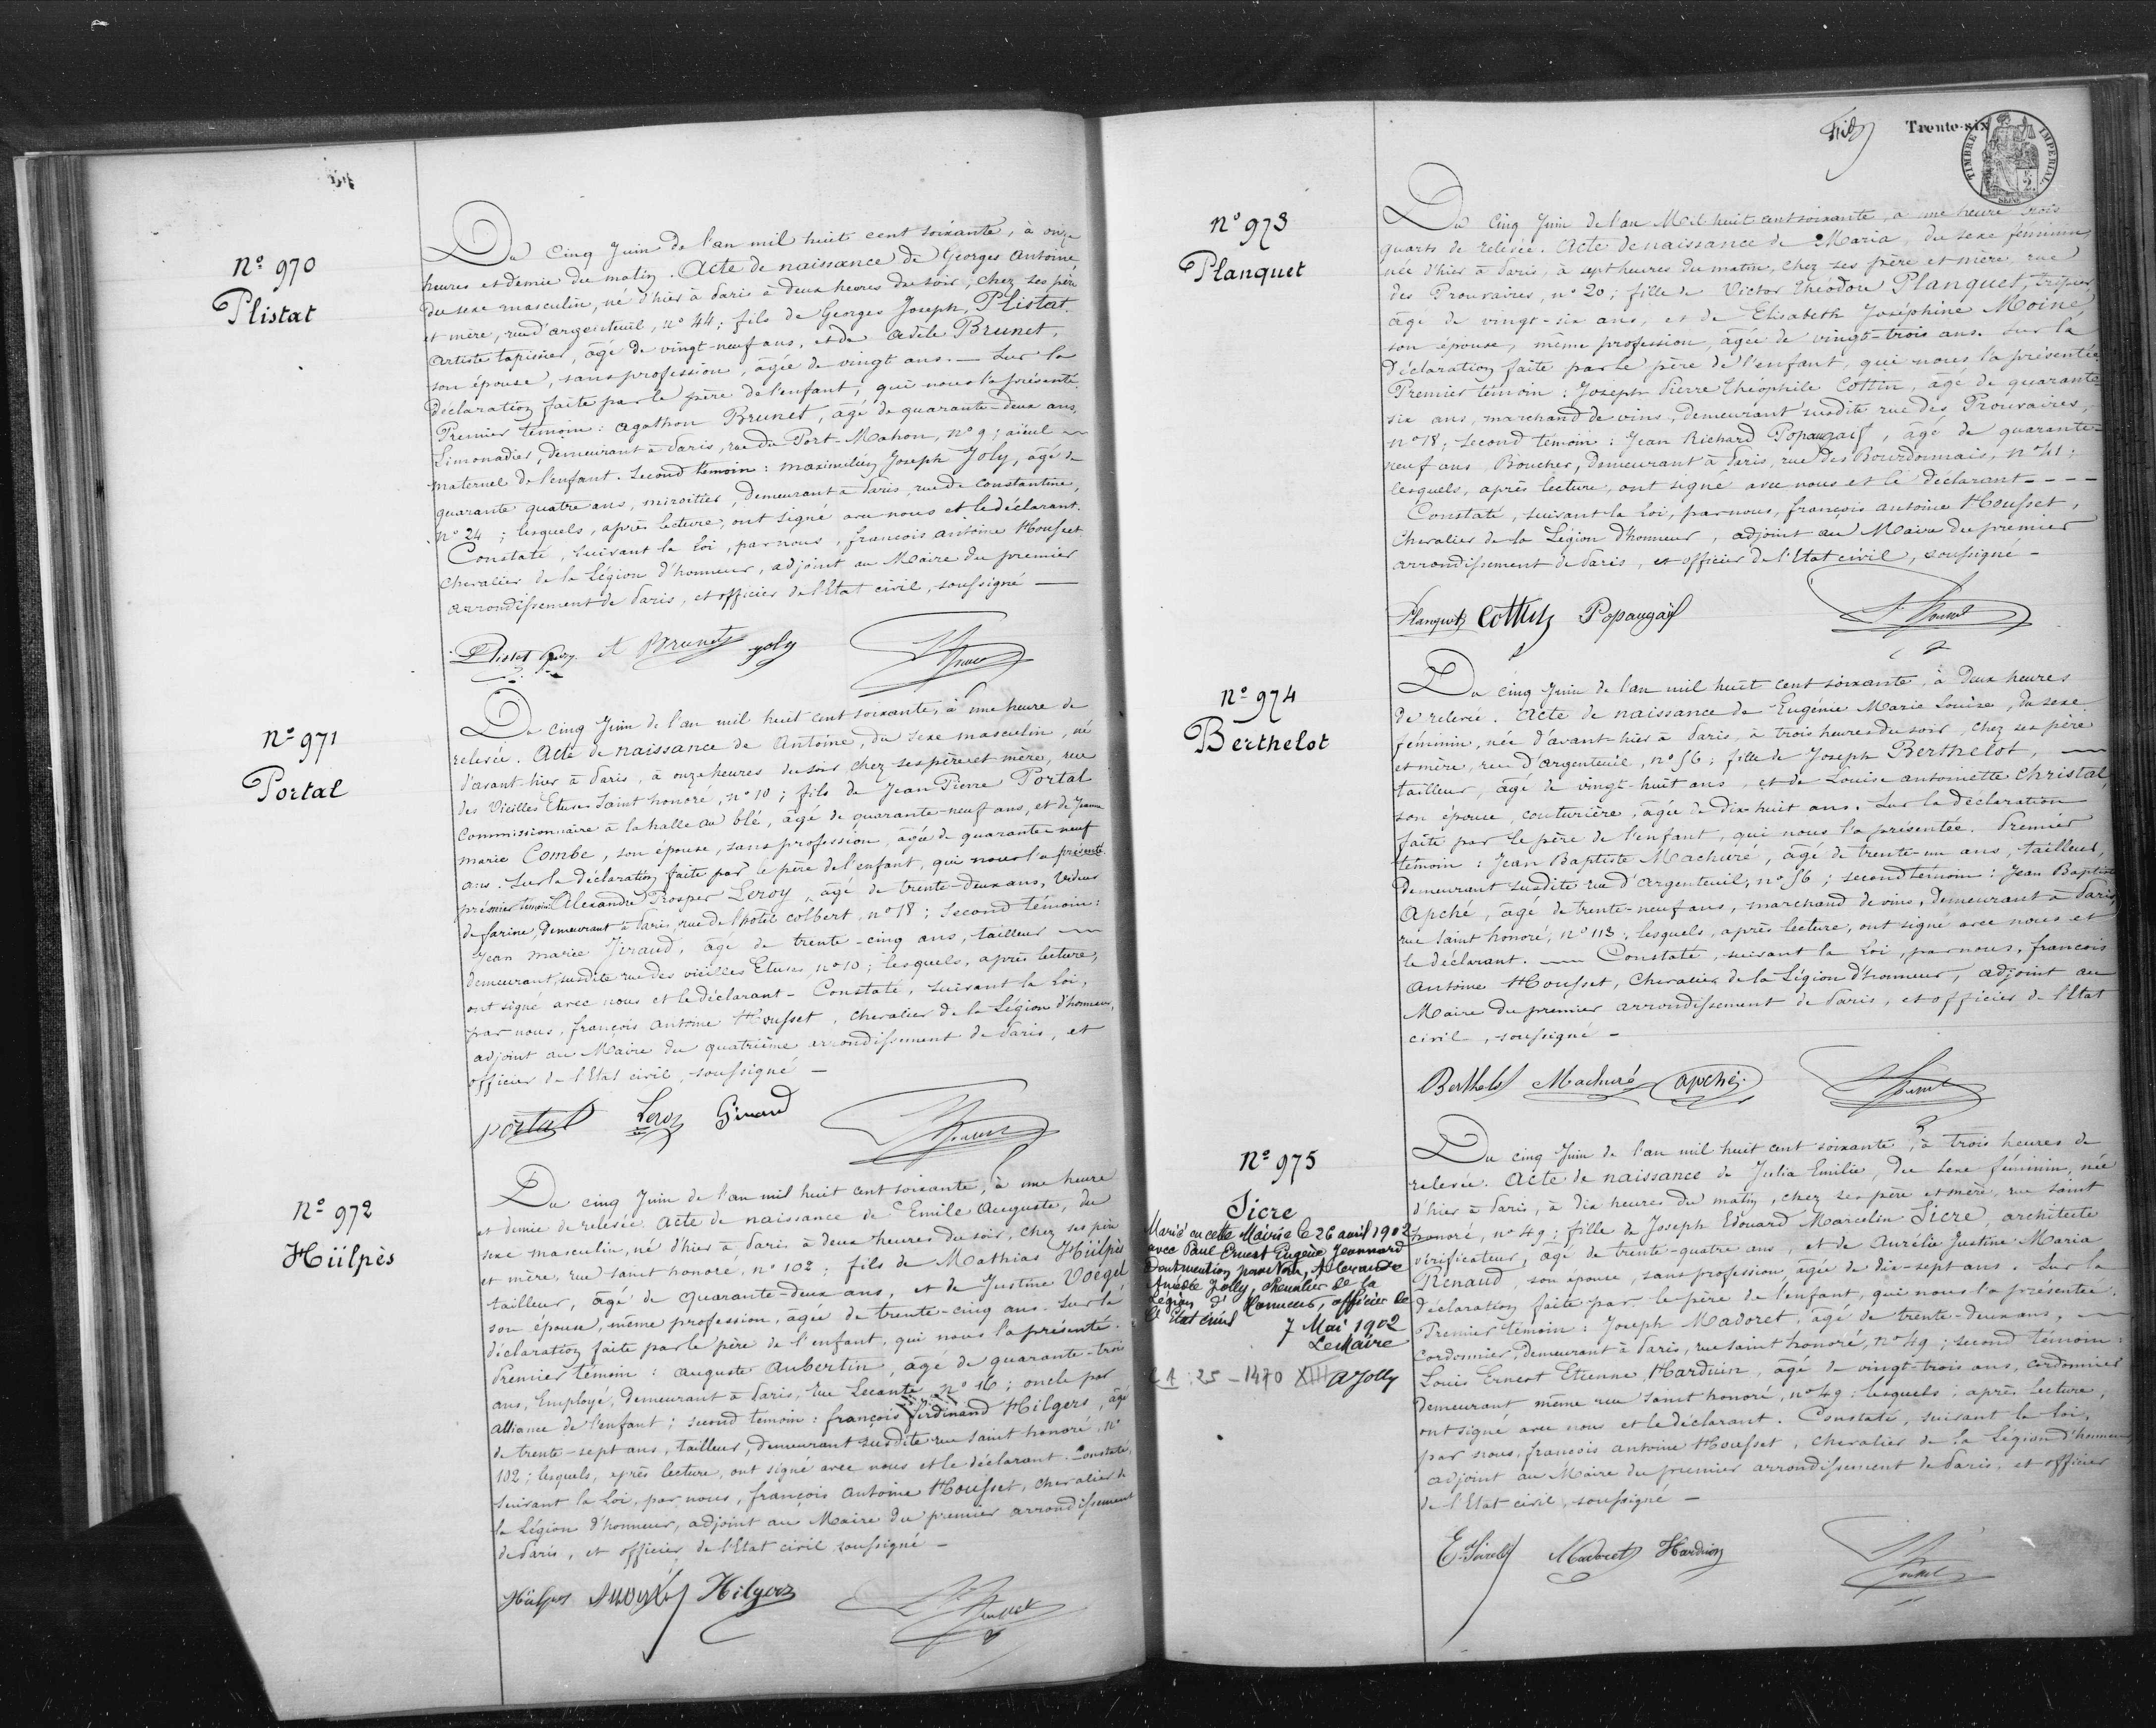 Nº 970
Plistat
Du Cinq Juin de l'an mil huit cent soixante, à onze
heures et demie du matin. Acte de naissance de Georges Antoine
du sexe masculin, né d'hier à Paris à deux heures du soir, chez ses père
et mère, rue d'argenteuil, nº 44; fils de Georges Joseph, Plistat.
Artiste tapissier, âgé de vingt-neuf ans, et de Adèle Brunet,
son épouse, sans profession, âgée de vingt ans. — Sur la
déclaration faite par le père de l'enfant, qui nous l'a présenté.
Premier témoin: Agathon Brunet, âgé de quarante-deux ans,
Limonadier, demeurant à Paris, rue du Port-Mahon, nº 9; aïeul
maternel de l'enfant. Second témoin: Maximilien Joseph Joly, âgé de
quarante quatre ans, miroitier, demeurant à Paris, rue de Constantine,
nº 24; lesquels, après lecture, ont signé avec nous et le déclarant.
Constaté, suivant la loi, par nous, françois antoine Housset
Chevalier de la Légion d'honneur, adjoint au Maire du premier
arrondissement de Paris, et officier de l'Etat civil, soussigné —
Plistat A Brunet Joly
Nº 971
Portal
Du cinq Juin de l'an mil huit cent soixante, à une heure de
relevée. Acte de naissance de Antoine, du sexe masculin, né
d'avant-hier à Paris, à onze heures du soir, chez ses père et mère, rue
des Vieilles Etuves Saint honoré, nº 10; fils de Jean Pierre Portal
Commissionnaire à la halle au blé, âgé de quarante-neuf ans, et de Jeanne
marie Combe, son épouse, sans profession, âgée de quarante neuf
ans. Sur la déclaration faite par le père de l'enfant, qui nous l'a présenté
premier témoin: Alexandre Prosper Leroy, âgé de trente-deux ans, Vendeur
de farine, demeurant à Paris, rue de l'hotel colbert, nº 18; Second témoin:
Jean marie Giraud, âgé de trente-cinq ans, tailleur
demeurant susdite rue des vieilles Etuves, nº 10; lesquels, après lecture,
ont signé avec nous et le déclarant - Constaté, suivant la loi,
par nous, françois Antoine Housset, chevalier de la Légion d'honneur,
adjoint au Maire du quatrième arrondissement de Paris, et
officier de l'Etat civil, soussigné —
portal Leroy Giraud
Nº 972
Hülpès
Du cinq Juin de l'an mil huit cent soixante, à une heure
et demie de relevée. Acte de naissance de Emile Auguste, du
sexe masculin, né d'hier à Paris à deux heures du soir, chez ses père
et mère, rue saint honoré, nº 102; fils de Mathias Hülpès
tailleur, âgé de quarante-deux ans, et de Justine Voegel
son épouse, même profession, âgée de trente-cinq ans. Sur la
déclaration faite par le père de l'enfant, qui nous l'a présenté.
Premier témoin: Auguste Aubertin, âgé de quarante-trois
ans, Employé, demeurant à Paris, rue nº 16; oncle par
alliance de l'enfant; second témoin: françois ferdinand Hilgers, âgé
de trente-sept ans, tailleur, demeurant susdite rue saint honoré, nº
102; lesquels, après lecture, ont signé avec nous et le déclarant. Constaté,
suivant la loi, par nous, françois Antoine Housset, chevalier de
la Légion d'honneur, adjoint au Maire du premier arrondissement
de Paris, et officier de l'Etat civil soussigné —
Hülpes Hilgers
Trente-six
TIMBRE IMPERIAL
SEINE
Nº 973
Planquet
Du Cinq Juin de l'an Mil huit cent soixante, à une heure trois
quarts de relevée. Acte de naissance de Maria, du sexe féminin,
née d'hier à Paris, à sept heures du matin, chez ses père et mère, rue
des Prouvaires, nº 20; fille de Victor Théodore Planquet, tripier,
âgé de vingt-six ans, et de Elisabeth Joséphine Moine
son épouse, même profession, âgée de vingt-trois ans. Sur la
Déclaration faite par le père de l'enfant, qui nous l'a présentée
Premier témoin: Joseph Pierre Théophile Cottin, âgé de quarante
six ans, marchand de vins, demeurant susdite rue des Prouvaires,
nº 18; second témoin: Jean Richard Popaugaÿ, âgé de quarante-
neuf ans, Boucher, demeurant à Paris, rue des Bourdonnais, nº 41;
lesquels, après lecture, ont signé avec nous et le déclarant - - - -
Constaté, suivant la loi, par nous, françois antoine Housset,
Chevalier de la Légion d'honneur, adjoint au Maire du premier
arrondissement de Paris, et officier de l'Etat civil, soussigné —
Planquet Cottin Popaugaÿ
Nº 974
Berthelot
Du cinq Juin de l'an mil huit cent soixante, à Deux heures
de relevée. Acte de naissance de Eugénie Marie Louise, du sexe
féminin, née d'avant-hier à Paris, à trois heures du soir, chez ses père
et mère, rue d'argenteuil, nº 56; fille de Joseph Berthelot,
tailleur, âgé de vingt-huit ans, et de Louise antoinette Christal,
son épouse, couturière, âgée de dix huit ans. Sur la déclaration
faite par le père de l'enfant, qui nous l'a présentée. Premier
témoin: Jean Baptiste Machuré, âgé de trente-un ans, tailleur,
demeurant susdite rue d'argenteuil, nº 56; second témoin: Jean Baptiste
Apché, âgé de trente-neuf ans, marchand de vins, demeurant à Paris,
rue saint honoré, nº 113; lesquels, après lecture, ont signé avec nous et
le déclarant. — Constaté, suivant la loi, par nous, françois
Antoine Housset, Chevalier de la Légion d'honneur, adjoint au
Maire du premier arrondissement de Paris, et officier de l'Etat
civil, soussigné —
Berthelot Machuré apché
Nº 975
Sicre
Marié en cette Mairie le 26 avril 1902
avec Paul Ernest Eugène Jeannard
Dont mention par Nous, Alexandre
Amédée Jolly, chevalier de la
Légion d'Honneur, officier de
l'Etat civil
7 Mai 1902
Le Maire
A Jolly
Du cinq Juin de l'an mil huit cent soixante, à trois heures de
relevée. Acte de naissance de Julia Emilie, du sexe féminin, née
d'hier à Paris, à dix heures du matin, chez ses père et mère, rue saint
honoré, nº 49; fille de Joseph Edouard Marcelin Sicre, architecte
vérificateur, âgé de trente-quatre ans, et de Aurélie Justine Maria
Renaud, son épouse, sans profession, âgée de dix-sept ans. Sur la
déclaration faite par le père de l'enfant, qui nous l'a présentée.
Premier témoin: Joseph Madoret, âgé de trente-deux ans,
Cordonnier, demeurant à Paris, rue saint honoré, nº 49; second témoin:
Louis Ernest Etienne Harduin, âgé de vingt-trois ans, cordonnier
demeurant même rue saint honoré, nº 49; lesquels, après lecture,
ont signé avec nous et le déclarant. Constaté, suivant la loi,
par nous, françois antoine Housset, chevalier de la Légion d'honneur
adjoint au Maire du premier arrondissement de Paris, et officier
de l'Etat civil, soussigné —
Madoret Harduin